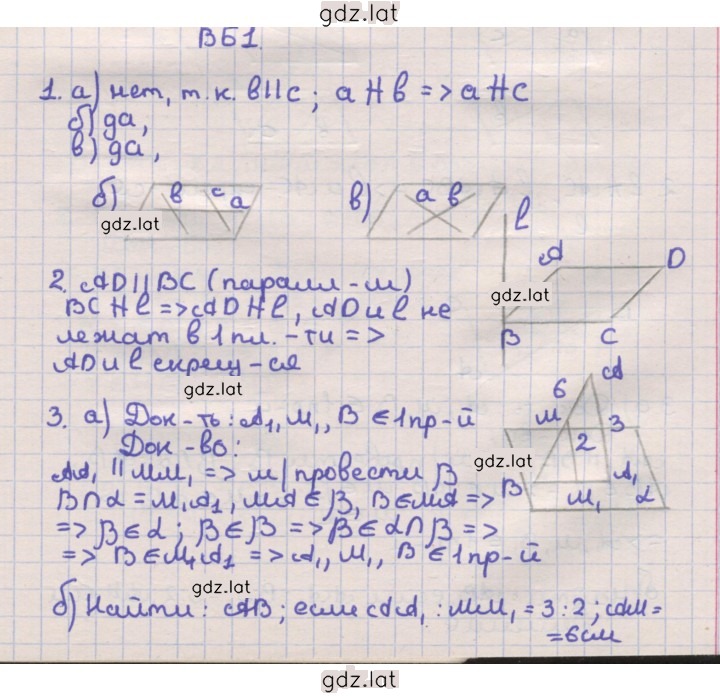 gdz.lat
ВБ1.
1. а) нет, т.к. в||с; а ∦ в => а ∦ с
б) да,
в) да,
б) в с а
в) а в
l
gdz.lat
A D
B C
gdz.lat
2. AD || BC (паралл-м)
BC ∦ l => AD ∦ l, AD и l не
лежат в 1 пл.-ти =>
AD и l скрещ-ся
gdz.lat
3. а) Док-ть: A₁, M₁, B ∈ 1 пр-й
Док-во:
AA₁ || MM₁ => м/провести β
β∩α = M₁A₁, MA ∈ β, B ∈ MA =>
=> B ∈ α; B ∈ β => B ∈ α∩β =>
=> B ∈ M₁A₁ => A₁, M₁, B ∈ 1 пр-й
6 A
M 3
2
gdz.lat
B M₁ A₁ α
gdz.lat
б) Найти: AB; если AA₁ : MM₁ = 3:2; AM =
= 6см
gdz.lat